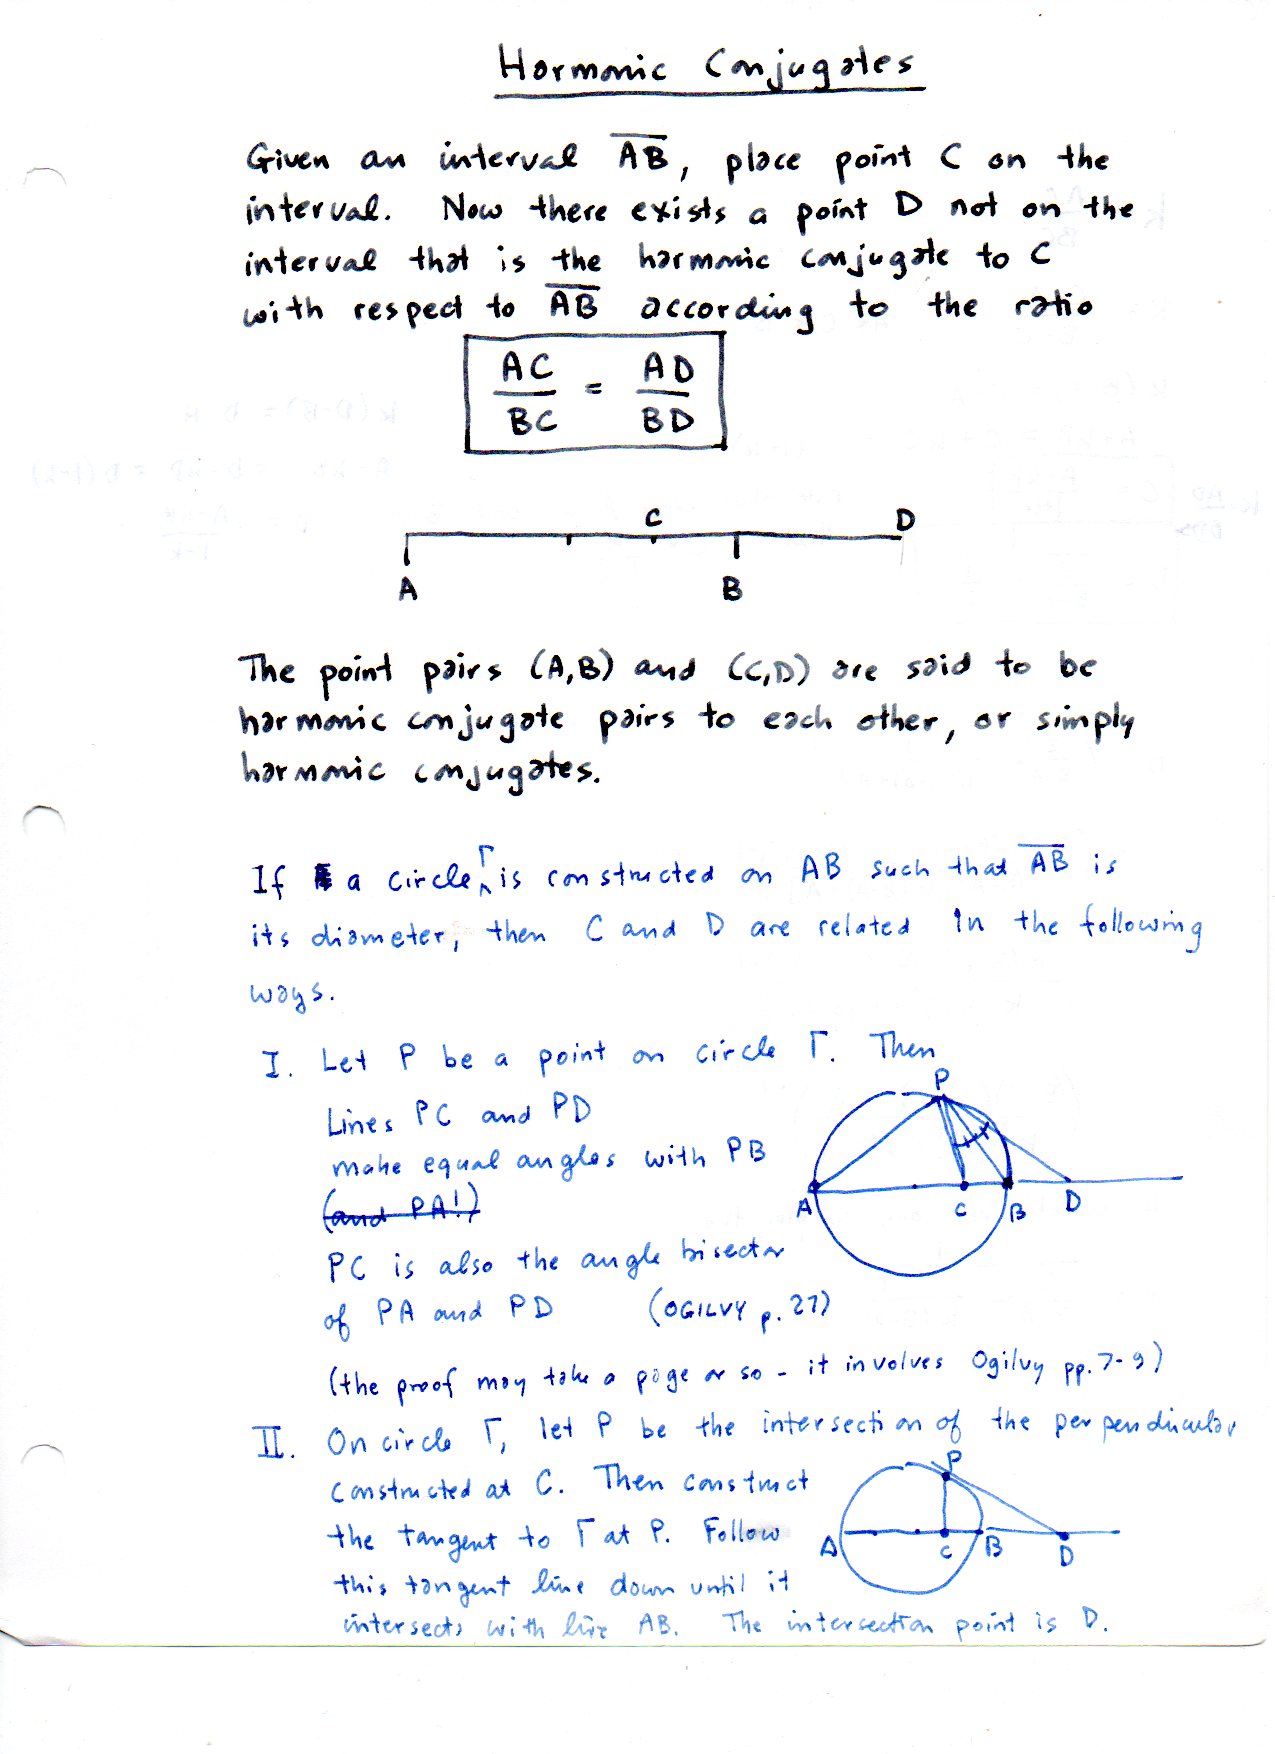 Harmonic Conjugates
Given an interval AB, place point C on the
interval. Now there exists a point D not on the
interval that is the harmonic conjugate to C
with respect to AB according to the ratio
AC/BC = AD/BD
C D
A B
The point pairs (A,B) and (C,D) are said to be
harmonic conjugate pairs to each other, or simply
harmonic conjugates.
If a circle Γ is constructed on AB such that AB is
its diameter, then C and D are related in the following
ways.
I. Let P be a point on circle Γ. Then
P
Lines PC and PD
make equal angles with PB
(and PA!)
A C B D
PC is also the angle bisector
of PA and PD (OGILVY p. 27)
(the proof may take a page or so - it involves Ogilvy pp. 7-9)
II. On circle Γ, let P be the intersection of the perpendicular
P
constructed at C. Then construct
the tangent to Γ at P. Follow
A C B D
this tangent line down until it
intersects with line AB. The intersection point is D.